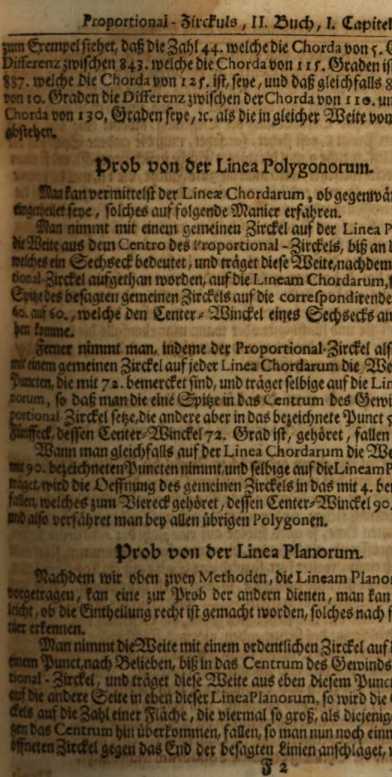 Proportional-Zirckuls, II. Buch, I. Capitel
zum Exempel siehet, daß die Zahl 44. welche die Chorda von 5. G
Differenz zwischen 843. welche die Chorda von 115. Graden is
887. welche die Chorda von 125. ist, seye, und daß gleichfalls 8
von 10. Graden die Differenz zwischen der Chorda von 110. un
Chorda von 130, Graden seye, ꝛc. als die in gleicher Weite von
abstehen.
Prob von der Linea Polygonorum.
Man kan vermittelst der Lineæ Chordarum, ob gegenwä
eingetheilet seye, solches auf folgende Manier erfahren.
Man nimmt mit einem gemeinen Zirckel auf der Linea P
die Weite aus dem Centro des Proportional-Zirckels, biß an
welches ein Sechseck bedeutet, und träget diese Weite, nachdem
tional-Zirckel aufgethan worden, auf die Lineam Chordarum,
Spitze des besagten gemeinen Zirckels auf die correspondirende
60. auf 60., welche den Center-Winckel eines Sechsecks an
ben komme.
Ferner nimmt man, indeme der Proportional-Zirckel als
mit einem gemeinen Zirckel auf jeder Linea Chordarum die We
Puncten, die mit 72. bemercket sind, und träget selbige auf die Lin
norum, so daß man die eine Spitze in das Centrum des Gewi
portional-Zirckel setze, die andere aber in das bezeichnete Punct 5
Fünffeck, dessen Center-Winckel 72. Grad ist, gehöret, fallen
Wann man gleichfalls auf der Linea Chordarum die We
mit 90. bezeichneten Puncten nimmt, und selbige auf die Lineam P
träget, wird die Oeffnung des gemeinen Zirckels in das mit 4. be
fallen, welches zum Viereck gehöret, dessen Center-Winckel 90.
und also verfähret man bey allen übrigen Polygonen.
Prob von der Linea Planorum.
Nachdem wir oben zwey Methoden, die Lineam Plano
vorgetragen, kan eine zur Prob der andern dienen, man kan
leicht, ob die Eintheilung recht ist gemacht worden, solches nach f
nier erkennen.
Man nimmt die Weite mit einem ordentlichen Zirckel auf
einem Punct, nach Belieben, biß in das Centrum des Gewinds
tional-Zirckel, und träget diese Weite aus eben diesem Punct
auf die andere Seite in eben dieser Linea Planorum, so wird die
ckels auf die Zahl einer Fläche, die viermal so groß, als diejenig
gen das Centrum hin überkommen, fallen, so man nun noch einm
öffneten Zirckel gegen das End der besagten Linien anschläget,
F 2